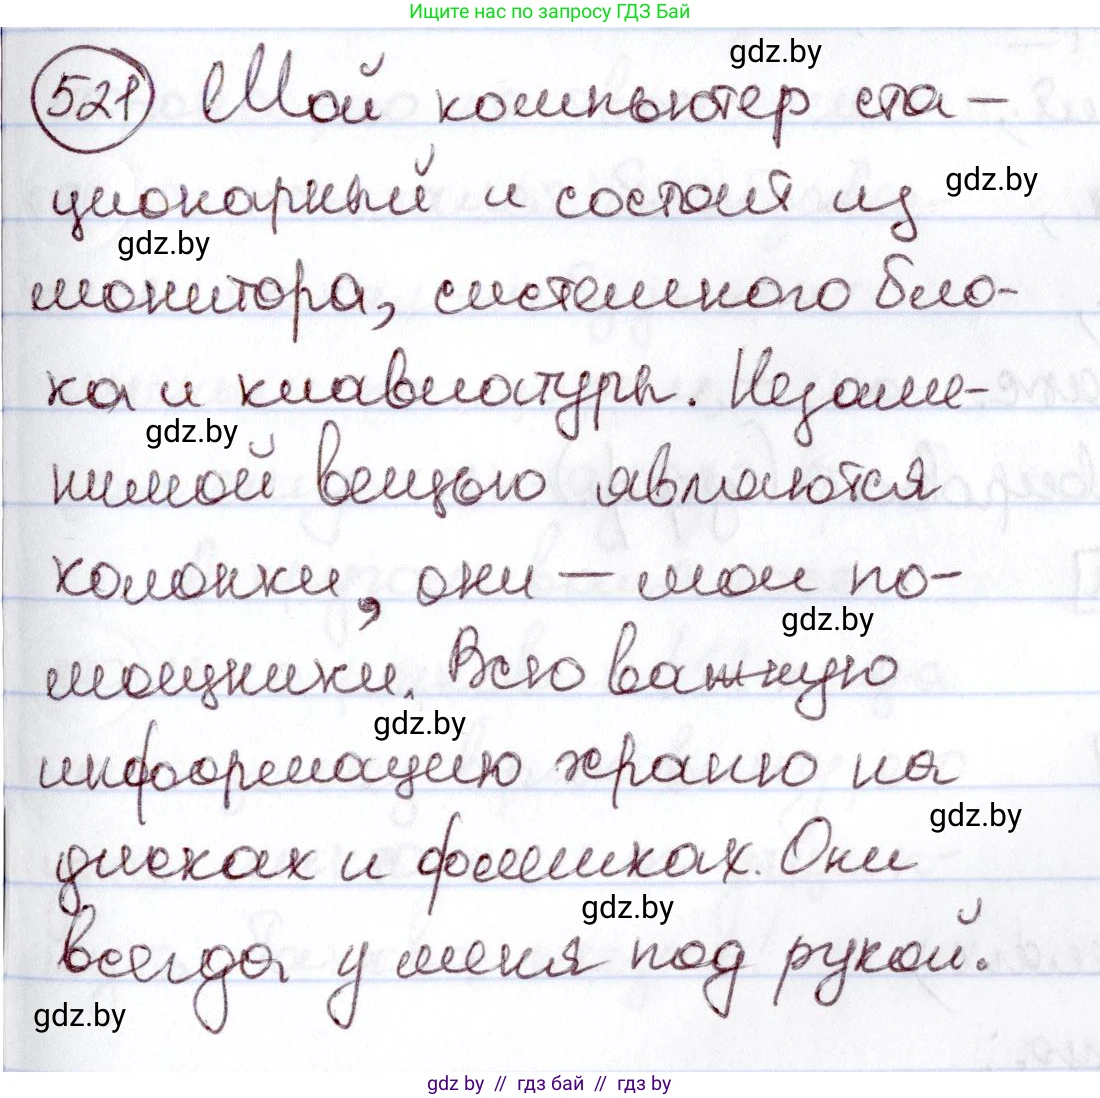 Ищите нас по запросу ГДЗ Бай
gdz.by
521 Мой компьютер ста-
gdz.by
ционарный и состоит из
gdz.by
монитора, системного бло-
ка и клавиатуры. Незаме-
gdz.by
нимой вещью являются
колонки, они – мои по-
gdz.by
мощники. Всю важную
gdz.by
информацию храню на
gdz.by
дисках и флешках. Они
gdz.by
всегда у меня под рукой.
gdz.by
gdz by // гдз бай // гдз by